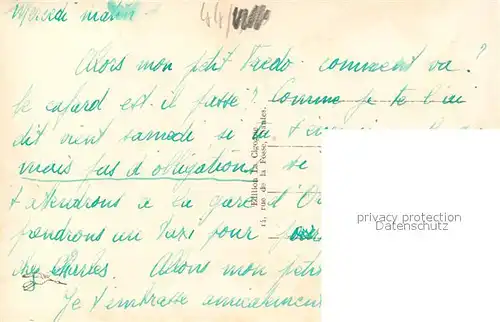 Mercredi matin
44/
Alors mon petit comment va?
le cafard est-il passé? Comme je te l'ai
dit vient samedi si tu
mais pas d'obligations se
t'attendrons a la gare d'Or
prendrons un taxi pour
chez Charles. Alons mon petit
Je t'embrasse amicalement
Edition La Cigogne
14, rue de la Fosse, Nantes.
privacy protection
Datenschutz